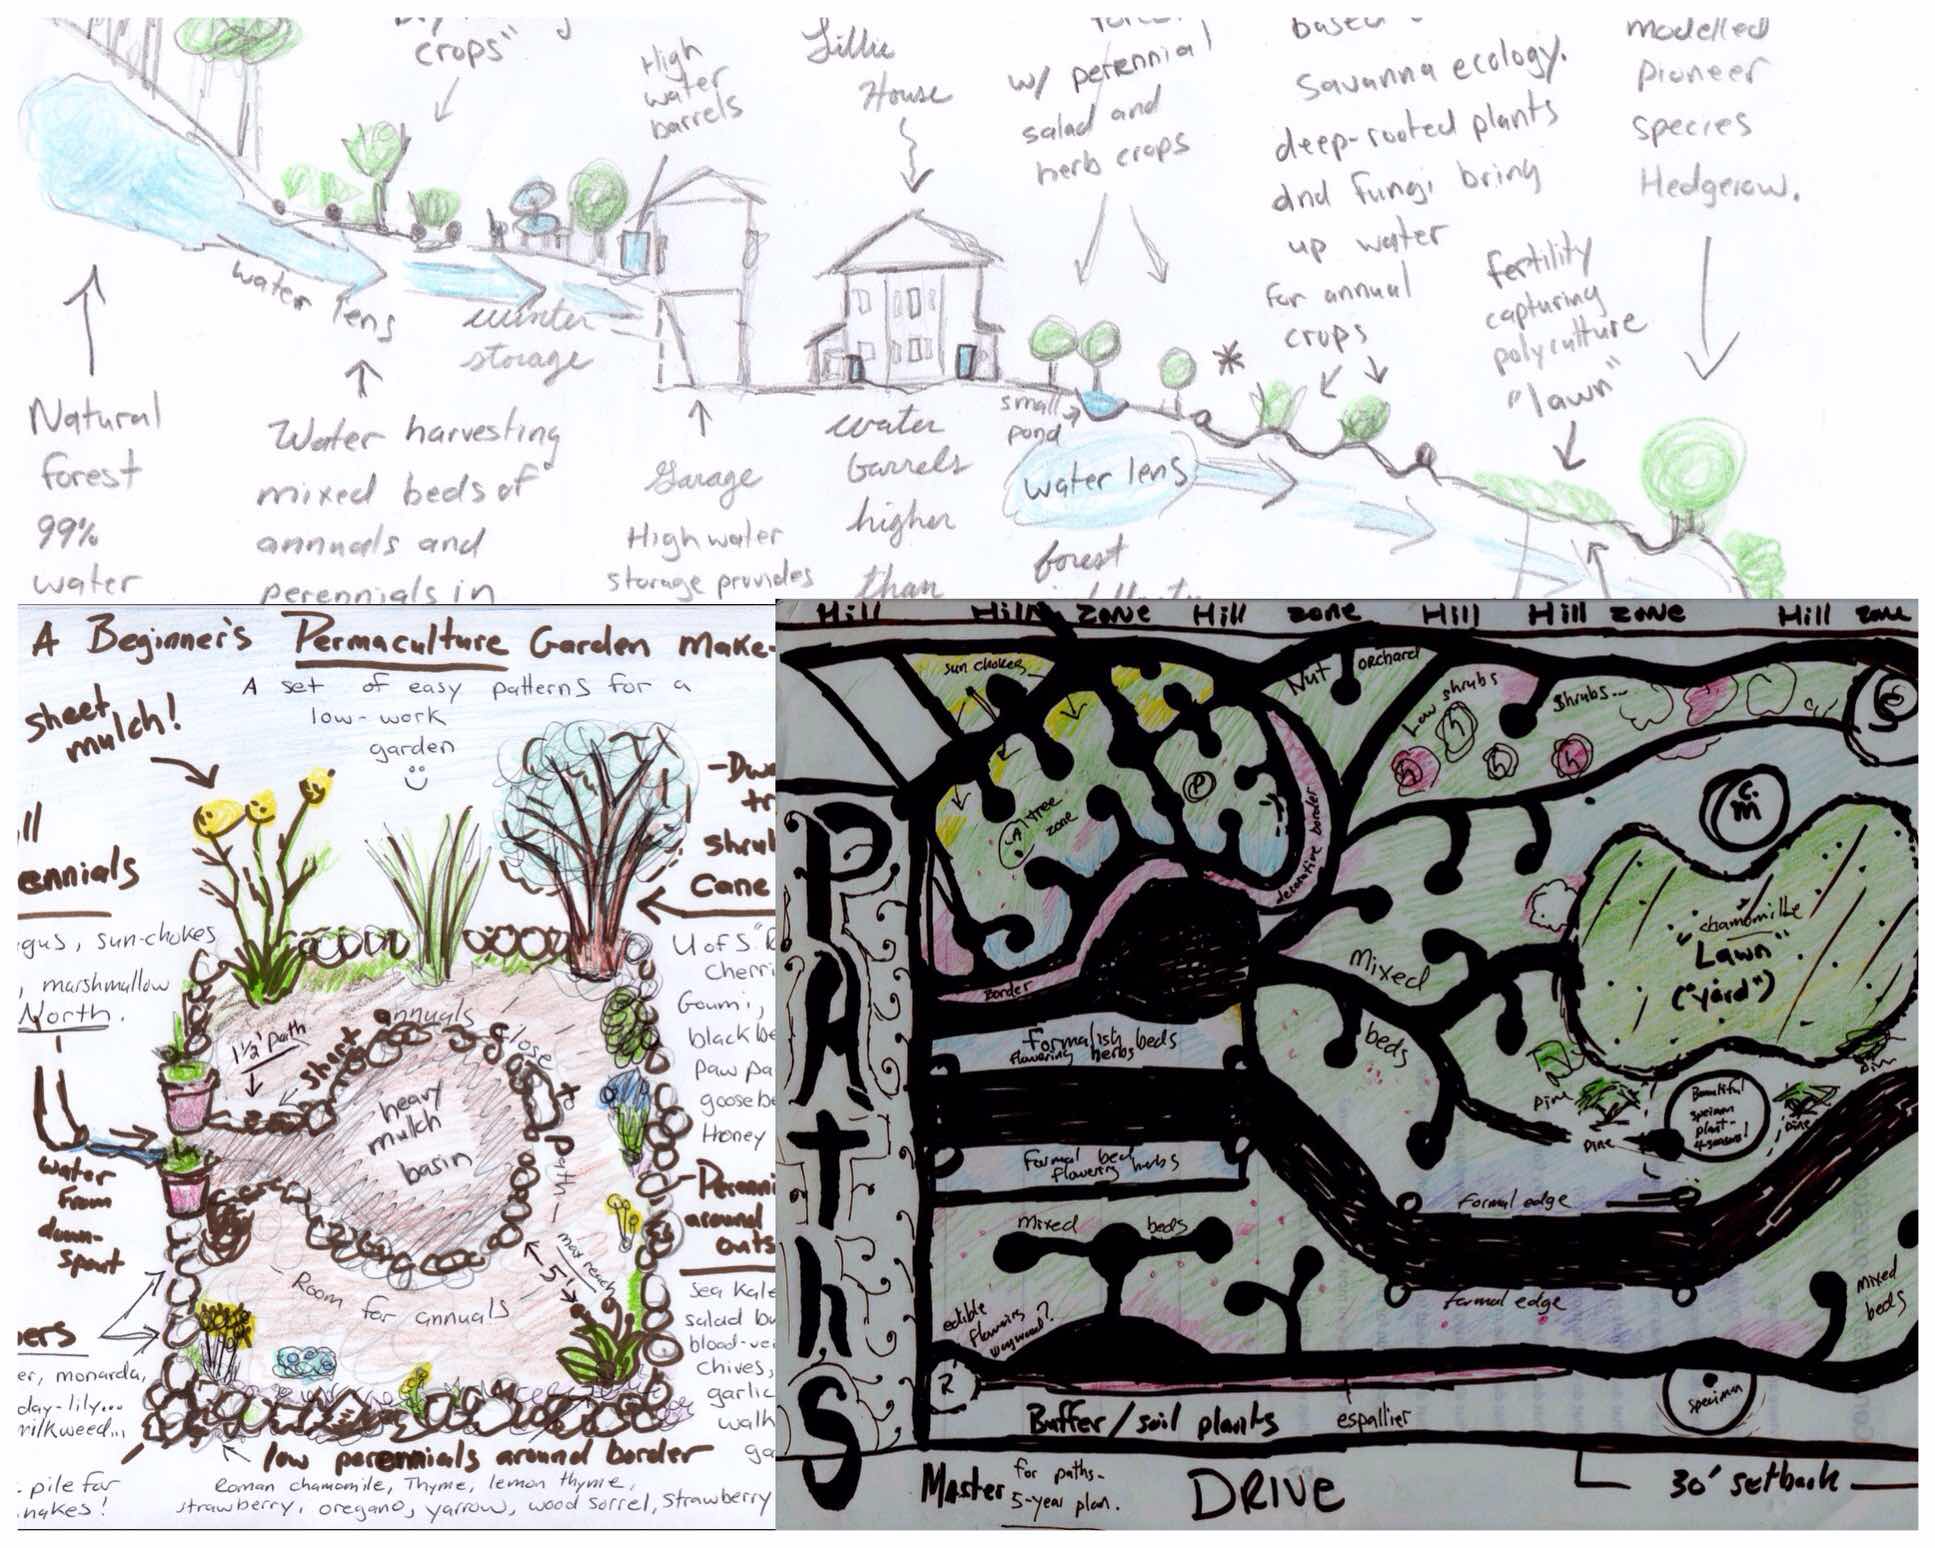 crops"
High
water
barrels
Lillie
House
w/ perennial
salad and
herb crops
based
Savanna ecology.
deep-rooted plants
and fungi bring
up water
for annual
crops
modelled
Pioneer
species
Hedgerow.
fertility
capturing
polyculture
"lawn"
water lens
winter
storage
small
pond
water lens
Natural
forest
99%
water
Water harvesting
mixed beds of
annuals and
perennials in
Garage
High water
storage provides
water
barrels
higher
than
forest
A Beginner's Permaculture Garden Make-
A set of easy patterns for a
low-work
garden
sheet
mulch!
ennials
gus, sun-chokes
, marshmallow
North.
water
from
down-
spout
ers
er, monarda,
day-lily...
milkweed...
pile for
nakes!
-Dwa
tr
shrub
Cane
U of S "R
Cherri
Goumi,
black be
paw pa
goosebe
Honey
Perenni
around
outs
Sea Kale
salad bu
blood-vei
chives,
garlic
walk
ga
1 1/2' path
annuals
short
close
to
path
heavy
mulch
basin
max reach
5'
Room for annuals
low perennials around border
Roman chamomile, Thyme, lemon thyme,
strawberry, oregano, yarrow, wood sorrel, strawberry
Hill Hill zone Hill zone Hill Hill zone Hill zone
PAThS
sun chokes
Nut orchard
Low shrubs
Shrubs...
tree
zone
P
h
h
h
h
decorative border
Border
C.
m
chamomille
"Lawn"
("yard")
Mixed
beds
Formalish beds
flowering herbs
Formal bed
flowering herbs
pine
pine
pine
Beautiful
specimen
plant-
4 seasons!
formal edge
formal edge
mixed beds
mixed
beds
edible
flowering
R
Buffer/soil plants
espallier
specimen
Master for paths-
5-year plan.
DRIVE
30' setback